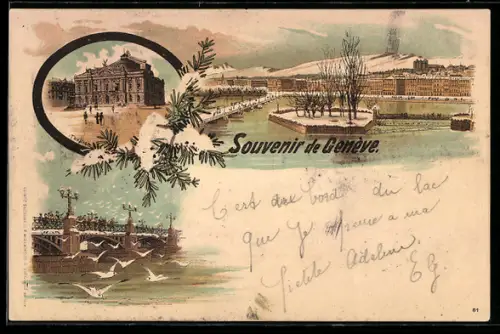 Souvenir de Genève.
C'est aux bord du lac
que Je pense a ma
petite Adeline
EG
61